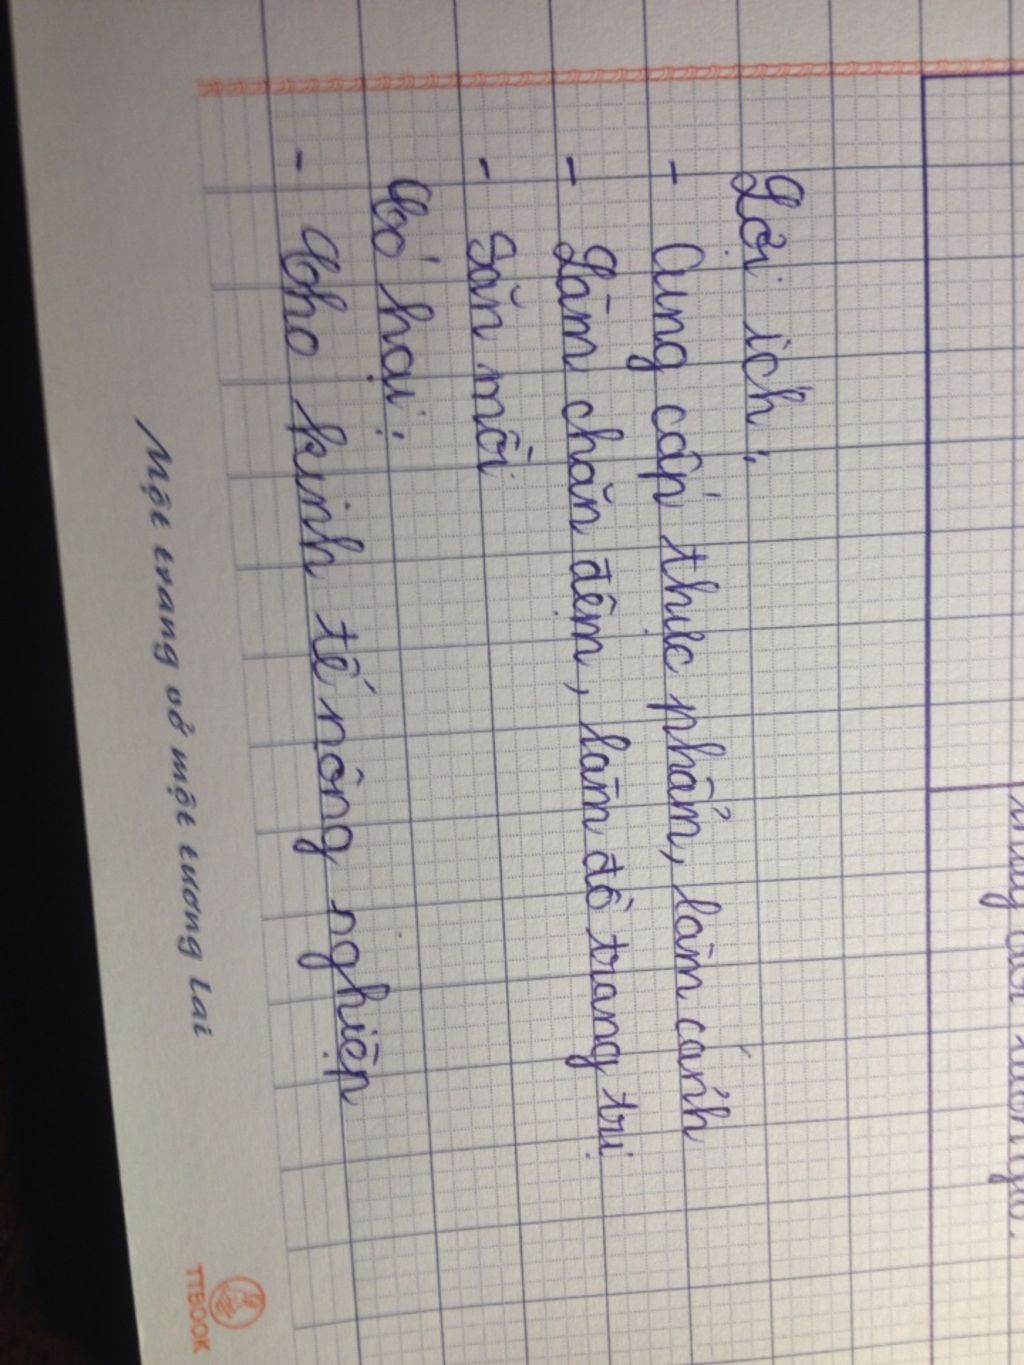 Lợi ích:
- Cung cấp thực phẩm, làm cảnh
- Làm chăn đệm, làm đồ trang trị
- Săn mồi
Có hại:
- Cho kinh tế nông nghiệp
Một trang vở một tương lai
TTBOOK